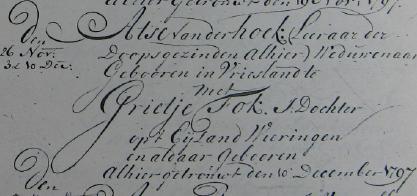 Alhier getrouwt den 19e Nov. 1797.
Den Atse van der hoek: Leeraar der
26 Nov. Doopsgezinden Alhier) Weduwenaar
3 & 10 Dec. Gebooren in Vrieslandte
Met
Grietje Fok: J. Dochter
op't Eijland Wieringen
en aldaar Gebooren
Alhier getrouwt den 10 December 1797
Den